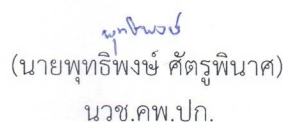 พุทธิพงษ์
(นายพุทธิพงษ์ ศัตรูพินาศ)
นวช.คพ.ปก.